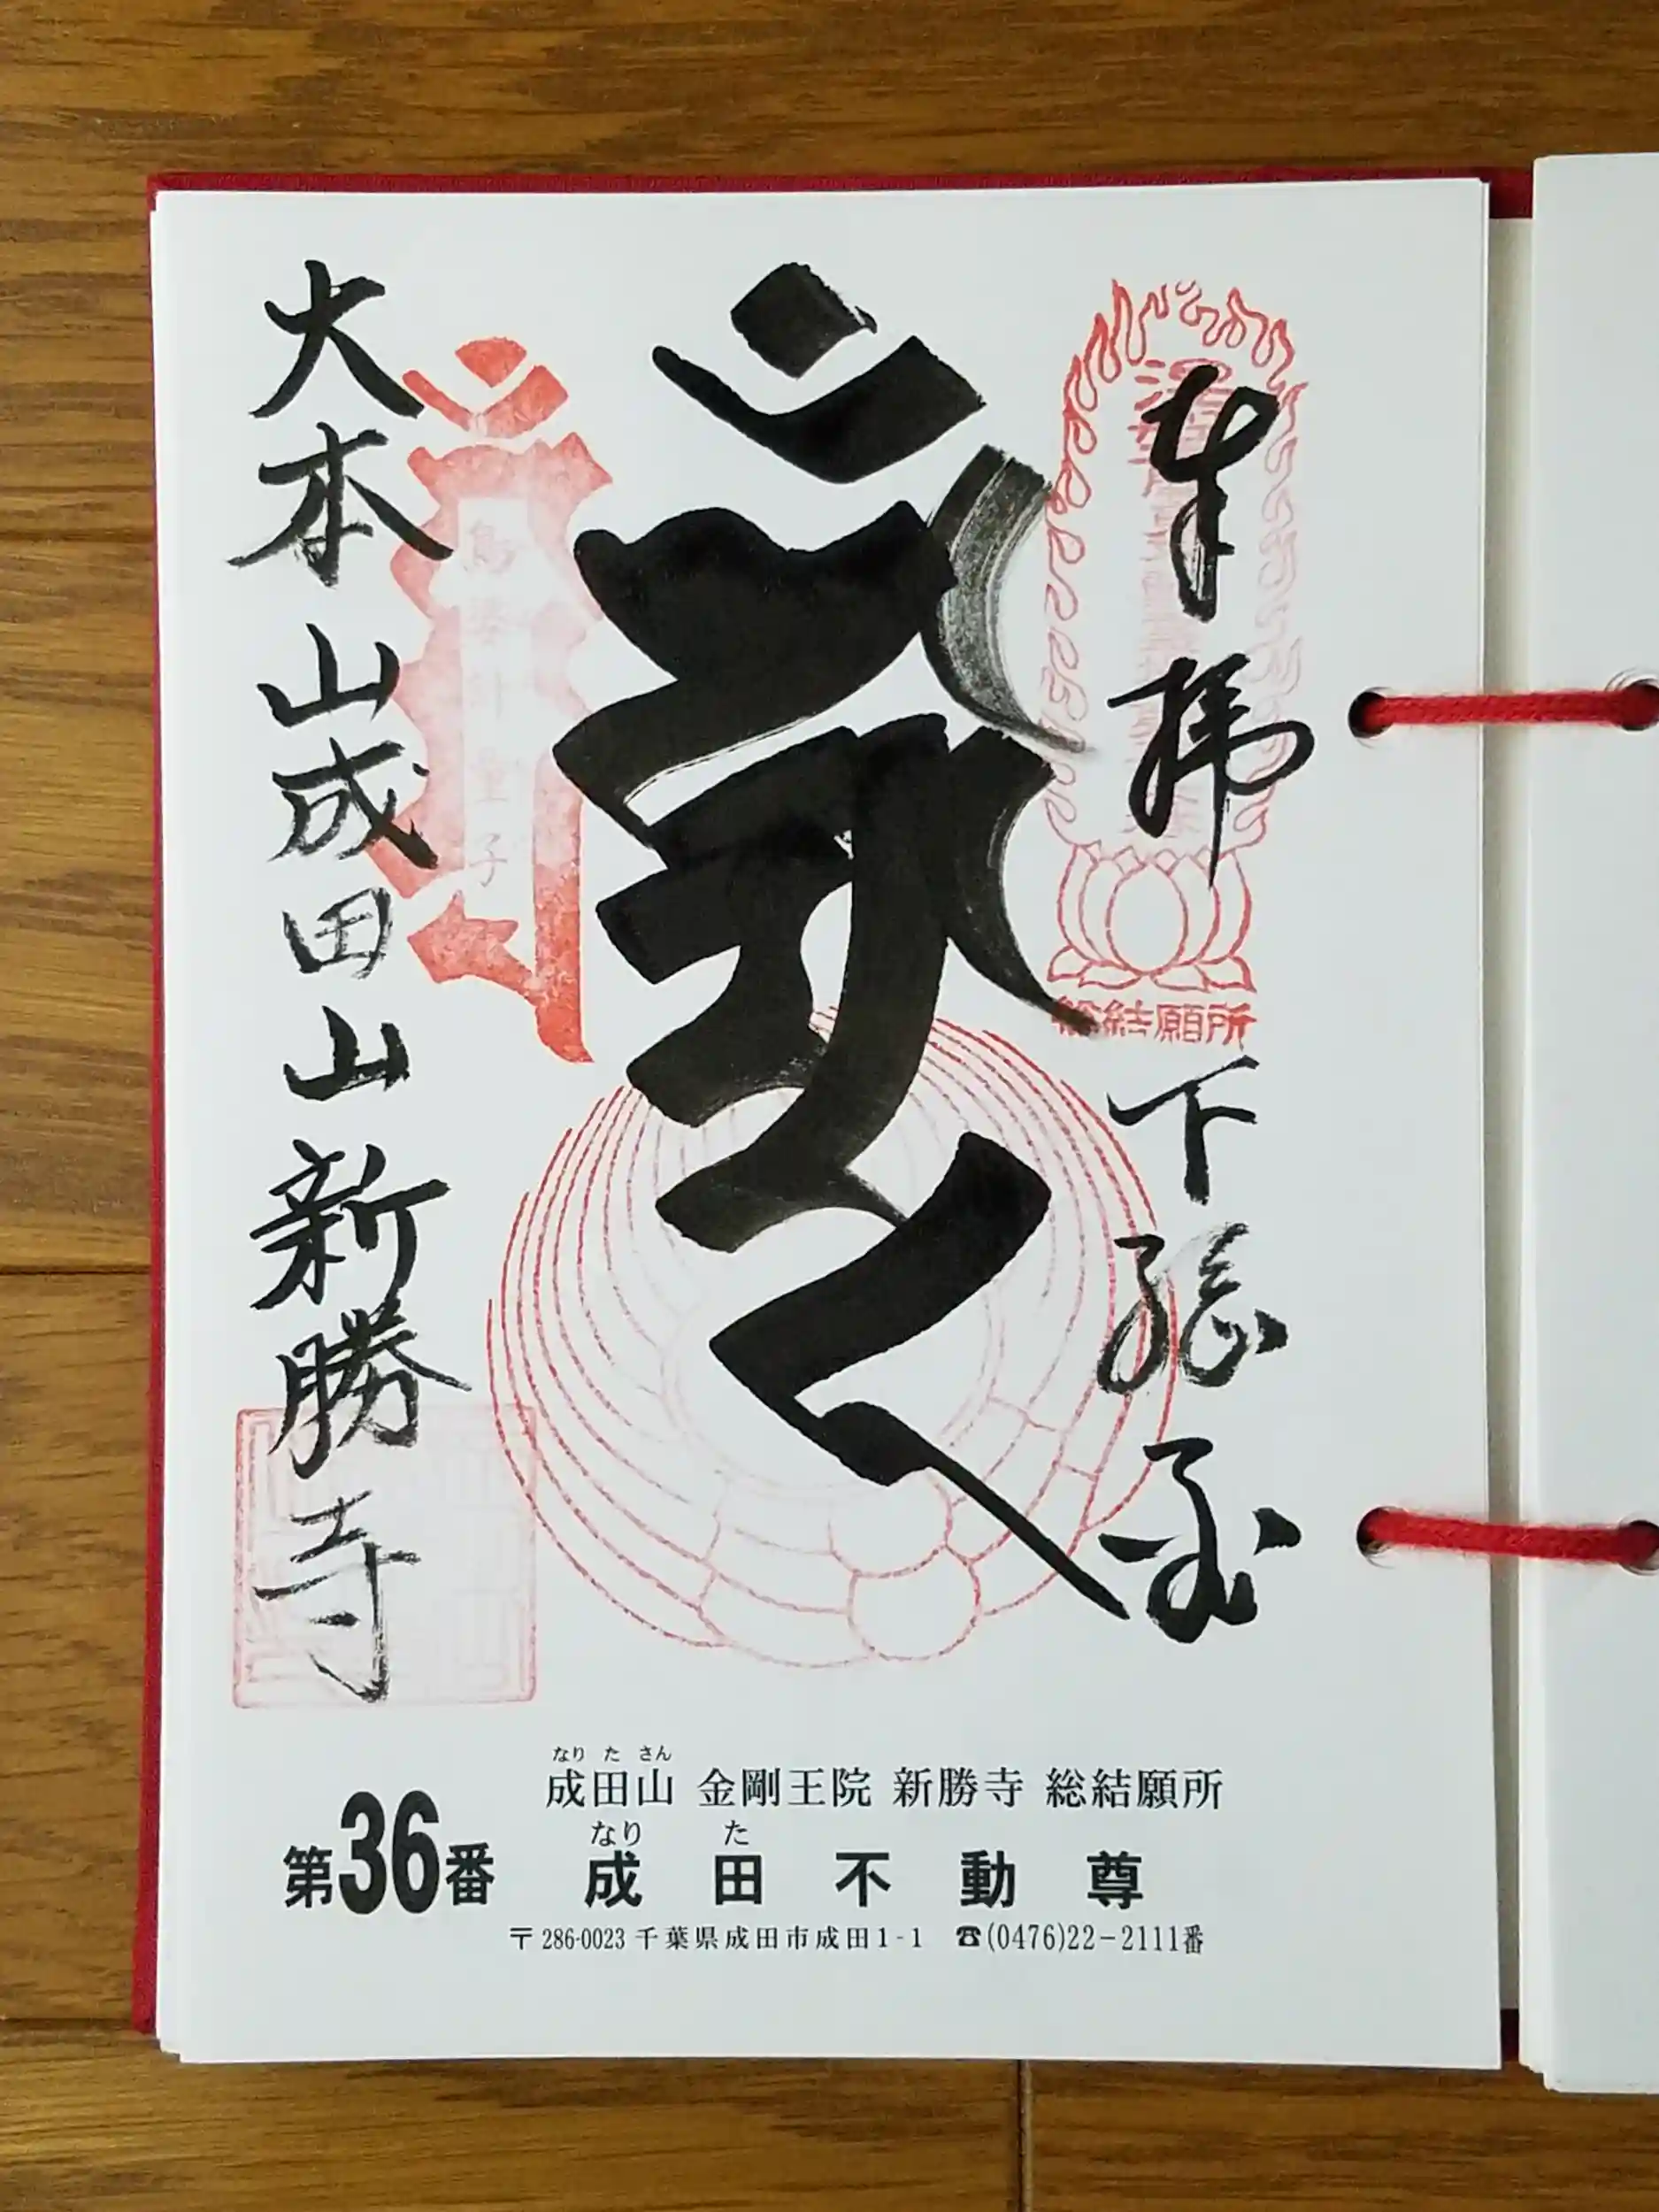 奉拝 下総国
総結願所
烏婆計童子
大本山成田山新勝寺
なりたさん
成田山 金剛王院 新勝寺 総結願所
なりた
第36番 成田不動尊
〒286-0023 千葉県成田市成田1-1 ☎(0476)22-2111番